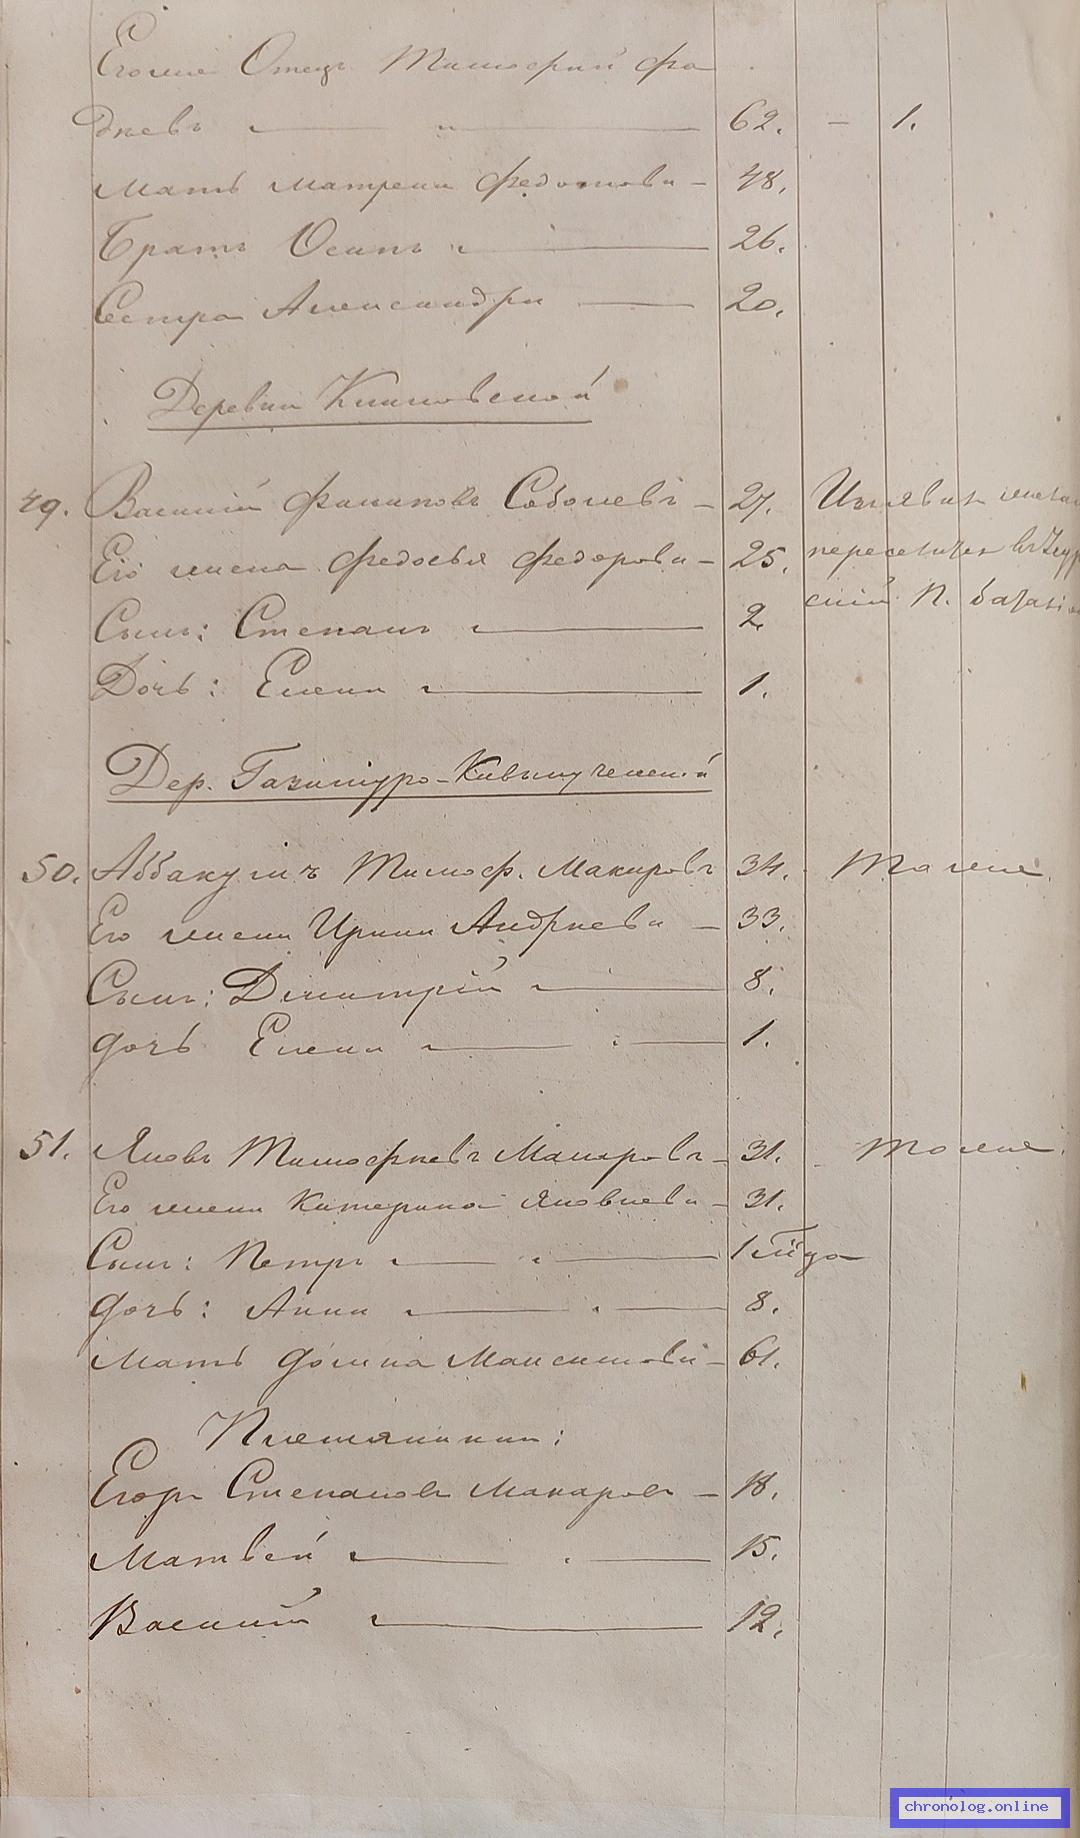 Его же Отецъ Тимофей Фа
днев — 62. — 1.
Мать Матрена Федотова — 48.
Братъ Осипъ — 26.
Сестра Александра — 20.
Деревни
49. Василий Филиповъ Соболевъ — 27. Изъявилъ желан
Его жена Федосья Федорова — 25. переселится въ
Сынъ: Степанъ — 2.
Дочь: Елена — 1.
Дер. Газимуро-
50. Аввакумъ Тимоф. Макаровъ 34. Тоже.
Его жена Ирина Андреева — 33.
Сынъ: Димитрій — 8.
дочь Елена — 1.
51. Яковъ Тимофеевъ Макаровъ — 31. тоже.
Его жена Катерина Яковлева — 31.
Сынъ: Петръ — 1 года
дочь: Анна — 8.
Мать Домна Максимова — 61.
Племянники:
Егоръ Степановъ Макаровъ — 18.
Матвей — 15.
Василий — 12.
chronolog.online